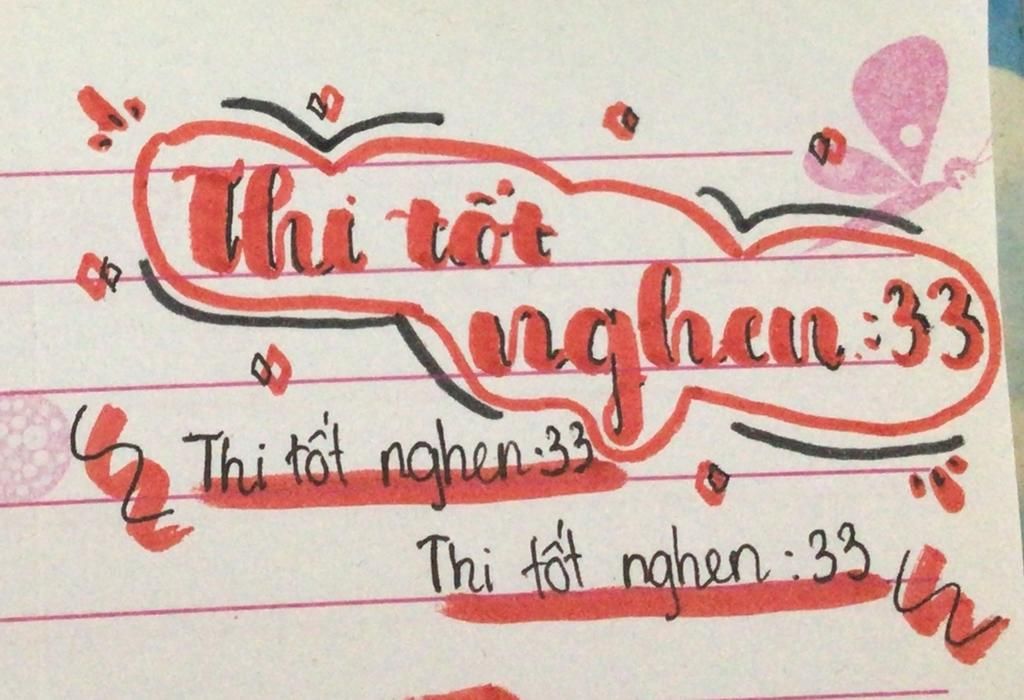 Thi tốt
nghen :33
Thi tốt nghen :33
Thi tốt nghen :33